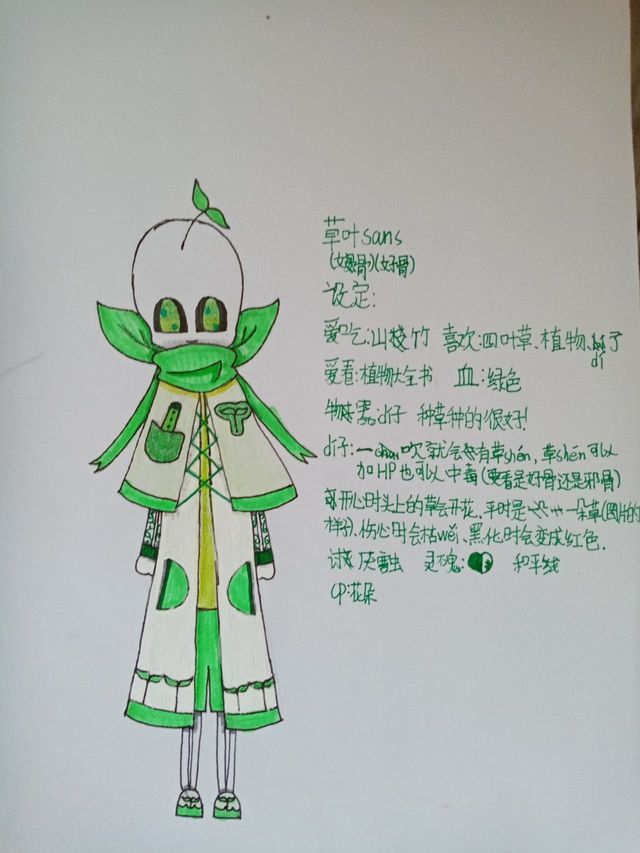 草叶sans
(女骨)(好骨)
设定:
爱吃:山楂 竹 喜欢:四叶草、植物、了
di
爱看:植物大全书 血:绿色
物器:di子 种草种的很好!
di子:一吹就会有草shén,草shén可以
加HP也可以中毒(要看是好骨还是邪骨)
开心时头上的草会开花,平时是一朵草(图片的
样子).伤心时会枯wěi、黑化时会变成红色.
讨厌:虫 灵魂: 和平线
cp:花朵